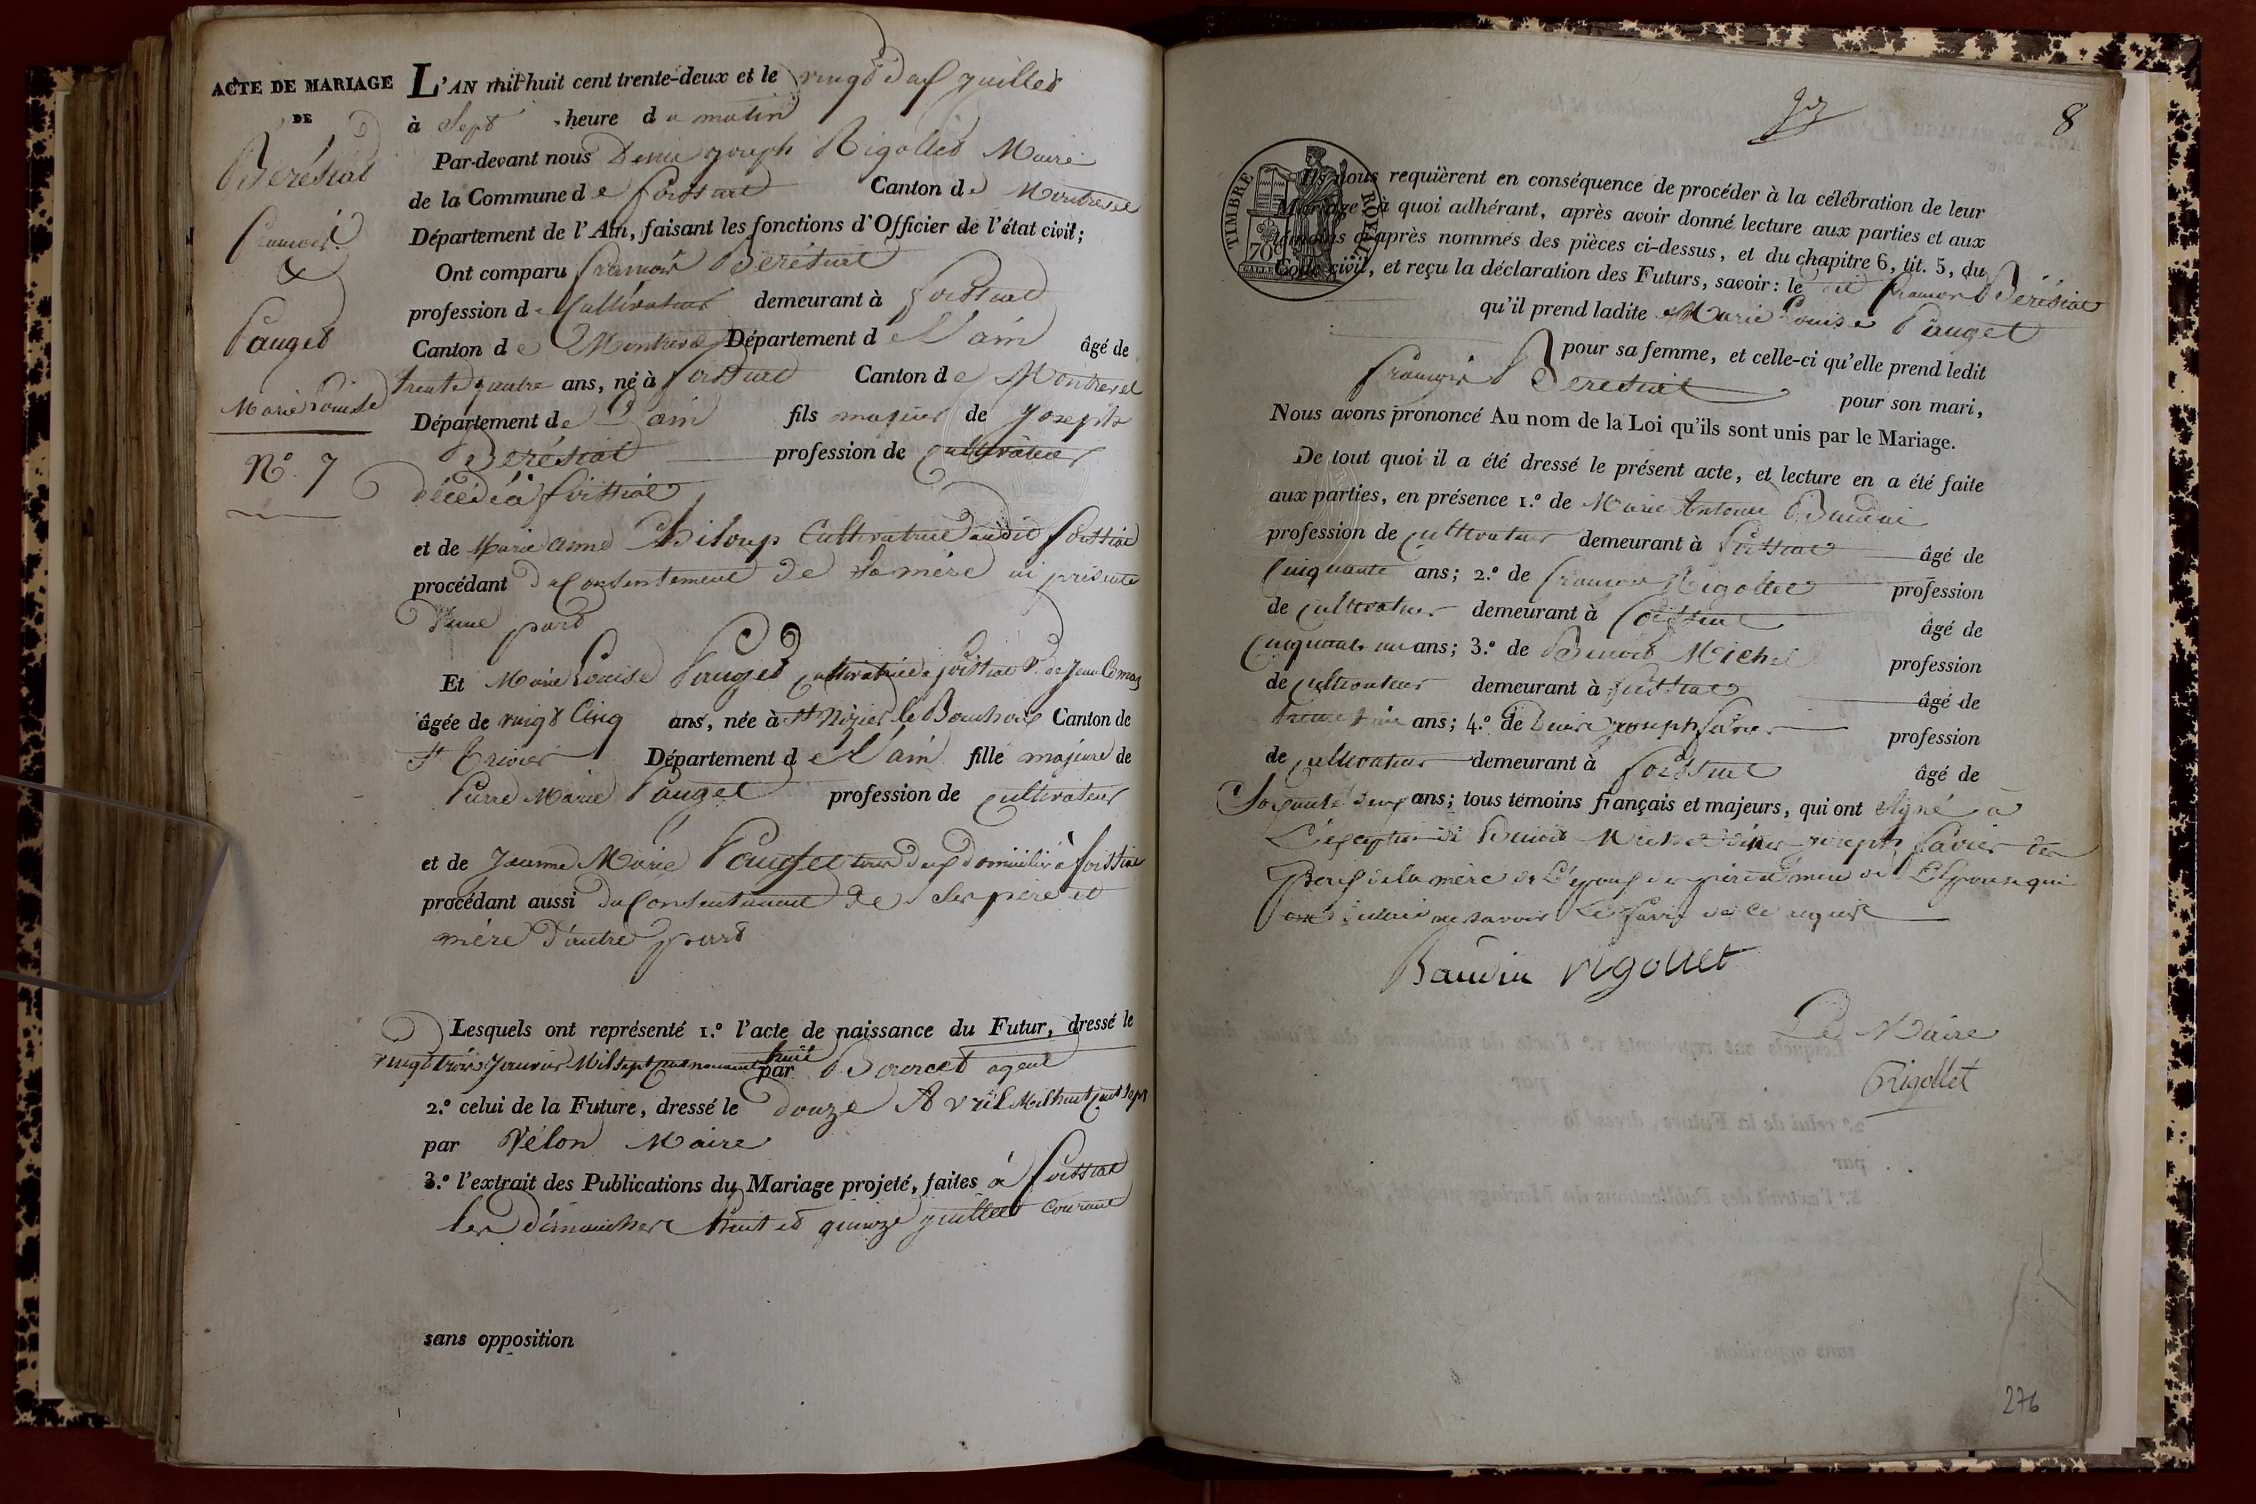 ACTE DE MARIAGE
DE
Bérésiat
François
&
Pauget
Marie Louise
N.º 7
L'AN mil huit cent trente-deux et le vingt deux juillet
à sept heure du matin
Par-devant nous Denis joseph Rigollet Maire
de la Commune de foissiat Canton de Montrevel
Département de l'Ain, faisant les fonctions d'Officier de l'état civil;
Ont comparu françois Bérésiat
profession de Cultivateur demeurant à foissiat
Canton de Montrevel Département de L'ain âgé de
trente quatre ans, né à foissiat Canton de Montrevel
Département de L'ain fils majeur de joseph
Bérésiat profession de cultivateur
décédé à foissiat
et de Marie anne Cultivatrice audit foissiat
procédant du Consentement de sa mère ici présente
d'une part
Et Marie Louise Pauget cultivatrice à foissiat de Jean
âgée de vingt Cinq ans, née à St Nizier le Bouchoux Canton de
St Trivier Département de L'ain fille majeure de
Pierre Marie Pauget profession de cultivateur
et de Jeanne Marie tous deux domiciliés à foissiat
procédant aussi du Consentement de ses père et
mère d'autre part
Lesquels ont représenté 1.º l'acte de naissance du Futur, dressé le
vingt trois Janvier Mil sept cent nonante huit par agent
2.º celui de la Future, dressé le douze Avril Mil huit cent sept
par Vélon Maire
3.º l'extrait des Publications du Mariage projeté, faites à foissiat
les dimanches huit et quinze juillet courant
sans opposition
8
TIMBRE ROYAL
70c
Ils nous requièrent en conséquence de procéder à la célébration de leur
Mariage, à quoi adhérant, après avoir donné lecture aux parties et aux
témoins ci-après nommés des pièces ci-dessus, et du chapitre 6, tit. 5, du
Code civil, et reçu la déclaration des Futurs, savoir: le dit françois Bérésiat
qu'il prend ladite Marie Louise Pauget
pour sa femme, et celle-ci qu'elle prend ledit
françois Bérésiat pour son mari,
Nous avons prononcé Au nom de la Loi qu'ils sont unis par le Mariage.
De tout quoi il a été dressé le présent acte, et lecture en a été faite
aux parties, en présence 1.º de Marie Antoine Baudin
profession de cultivateur demeurant à foissiat âgé de
cinquante ans; 2.º de françois Rigollet profession
de cultivateur demeurant à foissiat âgé de
cinquante un ans; 3.º de Benoit Michel profession
de cultivateur demeurant à foissiat âgé de
trente ans; 4.º de Denis joseph favier profession
de cultivateur demeurant à foissiat âgé de
Soixante deux ans; tous témoins français et majeurs, qui ont signé à
L'exception de Benoit Michel Denis joseph favier des
Epoux de la mère de L'époux des père et mère de L'Epouse qui
ont déclaré ne savoir Le faire de ce requis
Baudin rigollet
Le Maire
Rigollet
276